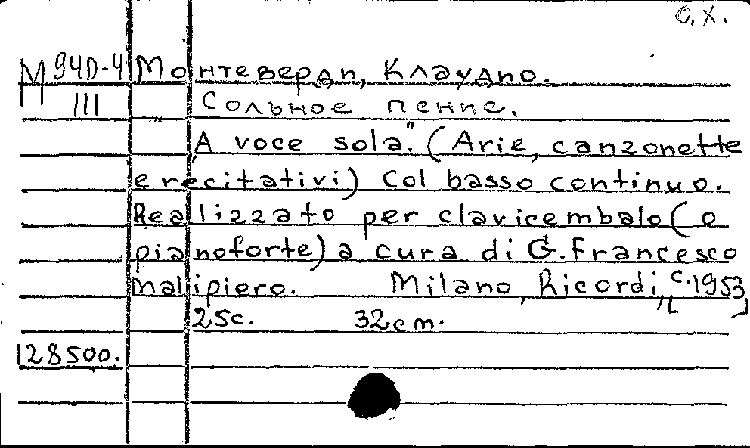 О.Х.
М 94D-4 Монтеверди, Клаудио.
III Сольное пение.
"A voce sola". (Arie, canzonette
e recitativi) Col basso continuo.
Realizzato per clavicembalo (o
pianoforte) a cura di G. Francesco
Malipiero. Milano, Ricordi, [c. 1953]
25c. 32cm.
128500.